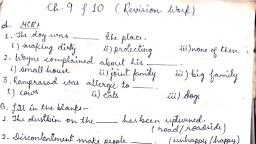 Ch. 9 & 10 (Revision Work)
A. MCQs
1. The dog was ______ the place.
i) making dirty ii) protecting iii) none of these
2. Wayne complained about his ______.
i) small house ii) joint family iii) big family
3. Ramprasad was allergic to ______.
i) cows ii) cats iii) dogs
B. Fill in the blanks -
1. The dustbin on the ______ has been upturned.
(road/roadside)
2. Discontentment make people ______. (unhappy/happy)